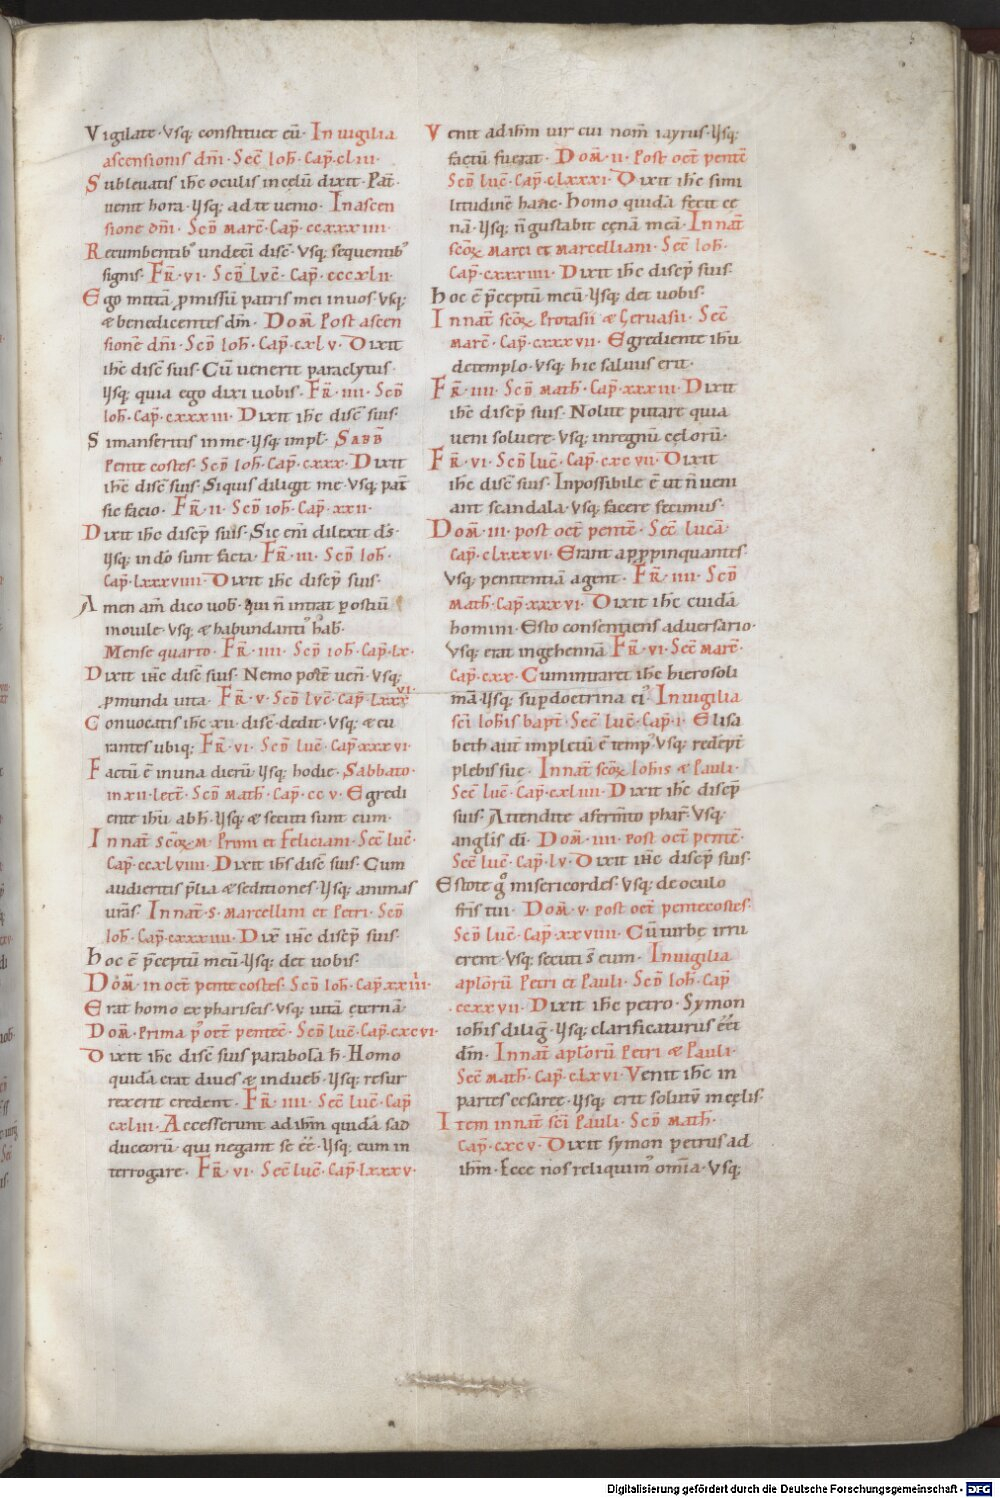 Vigilate · Vsq; constituet eū · In uigilia
ascensionis dn̄i · Sec̄ Ioh̄ · Cap̄ · cLiii ·
Subleuatis ih̄c oculis in cęlū dixit · Pat̄
uenit hora · Vsq; ad te uenio · In ascen
sione dn̄i · Scd̄ Marc̄ · Cap̄ · ccxxxiiii ·
Recumbentib; undeci disc̄ · Vsq; sequentib;
signis · Fr̄ · vi · Scd̄ Lvc̄ · Cap̄ · cccxlii ·
Ego mittā p̱missū patris mei in uos · Vsq;
& benedicentes dm̄ · Dom̄ Post ascen
sionē dn̄i · Scd̄ Ioh̄ · Cap̄ · cxlv · Dixit
ih̄c disc̄ suis · Cū uenerit paraclytus ·
Vsq; quia ego dixi uobis · Fr̄ · iiii · Scd̄
Ioh̄ · Cap̄ · cxxxiii · Dixit ih̄c disc̄ suis ·
Si manseritis in me · Vsq; impl̄ · Sabb̄
Pentecostes · Scd̄ Ioh̄ · Cap̄ · cxxx · Dixit
ih̄c disc̄ suis · Si quis diligit me · Vsq; pat̄
sic facio · Fr̄ · ii · Scd̄ ioh̄ · Cap̄ · xxii ·
Dixit ih̄c discip̄ suis · Sic eni dilexit ds̄ ·
Vsq; in dō sunt facta · Fr̄ · iii · Scd̄ Ioh̄ ·
Cap̄ · Lxxxviiii · Dixit ih̄c discip̄ suis ·
Amen am̄ dico uob̄ · qui n̄ intrat p̱ ostiū
in ouile · Vsq; & habundanti' hab̄ ·
Mense quarto · Fr̄ · iiii · Scd̄ ioh̄ · Cap̄ · Lx ·
Dixit ih̄c disc̄ suis · Nemo potē uen̄ · Vsq;
p̱ mundi uita · Fr̄ · v · Scd̄ Lvc̄ · Cap̄ · Lxxxvi ·
Conuocatis ih̄c xii · disc̄ · dedit · Vsq; & cu
rantes ubiq; Fr̄ · vi · Scd̄ Luc̄ · Cap̄ xxxvi ·
Factū ē in una dierū · Vsq; hodie · Sabbato ·
in xii · Lect̄ · Scd̄ Math̄ · Cap̄ · ccv · Egredi
ente ih̄u ab h̄ · Vsq; & secuti sunt eum ·
In nat̄ scōꝝ M · Primi et Feliciani · Sec̄ Luc̄ ·
Cap̄ · ccxlviiii · Dixit ih̄s disc̄ suis · Cum
audieritis p̄lia & seditiones · Vsq; animas
urās · In nat̄ · S · Marcellini et Petri · Scd̄
Ioh̄ · Cap̄ · cxxxiiii · Dix̄ ih̄c discip̄ suis ·
Hoc ē p̄ceptū meū · Vsq; det uobis ·
Dom̄ · in oct̄ pentecostes · Scd̄ Ioh̄ · Cap̄ · xxiiii ·
Erat homo ex phariseis · Vsq; uitā eternā ·
Dom̄ · Prima p' oct̄ pentec̄ · Scd̄ Luc̄ · Cap̄ · cxcvi ·
Dixit ih̄c disc̄ suis parabolā h̄ · Homo
quidā erat diues & indueb̄ · Vsq; resur
rexerit credent · Fr̄ · iiii · Sec̄ Luc̄ · Cap̄
cxliii · Accesserunt ad ih̄m quidā sad
duceorū · qui negant se ēē · Vsq; eum in
terrogare · Fr̄ · vi · Sec̄ Luc̄ · Cap̄ · Lxxxv ·
Venit ad ih̄m uir cui nom̄ iayrus · Vsq;
factū fuerat · Dom̄ · ii · Post oct̄ pentē
Scd̄ Luc̄ · Cap̄ · cLxxxi · Dixit ih̄c simi
litudinē hanc · Homo quidā fecit cę
nā · Vsq; n̄ gustabit cęnā meā · In nat̄
scōꝝ Marci et Marcelliani · Sec̄ Ioh̄ ·
Cap̄ · cxxxiiii · Dixit ih̄c discip̄ suis ·
Hoc ē p̄ceptū meū · Vsq; det uobis ·
In nat̄ scōꝝ Protasii & Geruasii · Sec̄
Marc̄ · Cap̄ · cxxxvii · Egrediente ih̄u
de templo · Vsq; hic saluus erit ·
Fr̄ · iiii · Scd̄ Math̄ · Cap̄ · xxxiii · Dixit
ih̄c discip̄ suis · Nolite putare quia
ueni soluere · Vsq; in regnū cęlorū ·
Fr̄ · vi · Scd̄ Luc̄ · Cap̄ · cxcvii · Dixit
ih̄c disc̄ suis · Inpossibile ē ut n̄ ueni
ant scandala · Vsq; facere fecimus ·
Dom̄ · iii · post oct̄ pentē · Sec̄ Lucā ·
Cap̄ · cLxxxvi · Erant app̱pinquantes ·
Vsq; penitentiā agent · Fr̄ · iiii · Scd̄
Math̄ · Cap̄ · xxxvi · Dixit ih̄c cuidā
homini · Esto consentiens aduersario ·
Vsq; erat in gehennā Fr̄ · vi · Sec̄ Marc̄ ·
Cap̄ · cxx · Cum intraret ih̄c hierosoli
mā · Vsq; sup̱ doctrina ei' · In uigilia
sc̄i Iohis bapt̄ · Sec̄ Luc̄ · Cap̄ · i · Elisa
beth aut̄ impletū ē temp' · Vsq; redēpt̄
plebis suę · In nat̄ scōꝝ Iohis & Pauli ·
Sec̄ Luc̄ · Cap̄ · cxliiii · Dixit ih̄c discip̄
suis · Attendite a ferm̄to phar̄ · Vsq;
anglis dī · Dom̄ · iiii · post oct̄ pentē ·
Sec̄ Luc̄ · Cap̄ · Lv · Dixit ih̄c discip̄ suis ·
Estote g° misericordes · Vsq; de oculo
fris̄ tui · Dom̄ · v · post oct̄ pentecostes ·
Scd̄ Luc̄ · Cap̄ · xxviiii · Cū turbę irru
erent · Vsq; secuti s̄ eum · In uigilia
aplōrū Petri et Pauli · Scd̄ Ioh̄ · Cap̄
· ccxxvii · Dixit ih̄c petro · Symon
iohis diligs̄ · Vsq; clarificaturus ēēt
dm̄ · In nat̄ aplōrū Petri & Pauli ·
Sec̄ Math̄ · Cap̄ · cLxvi · Venit ih̄c in
partes cesareę · Vsq; erit solutū in cęlis ·
Item in nat̄ sc̄i Pauli · Scd̄ Math̄ ·
Cap̄ · cxcv · Dixit symon petrus ad
ih̄m · Ecce nos reliquim' om̄ia · Vsq;
Digitalisierung gefördert durch die Deutsche Forschungsgemeinschaft - DFG